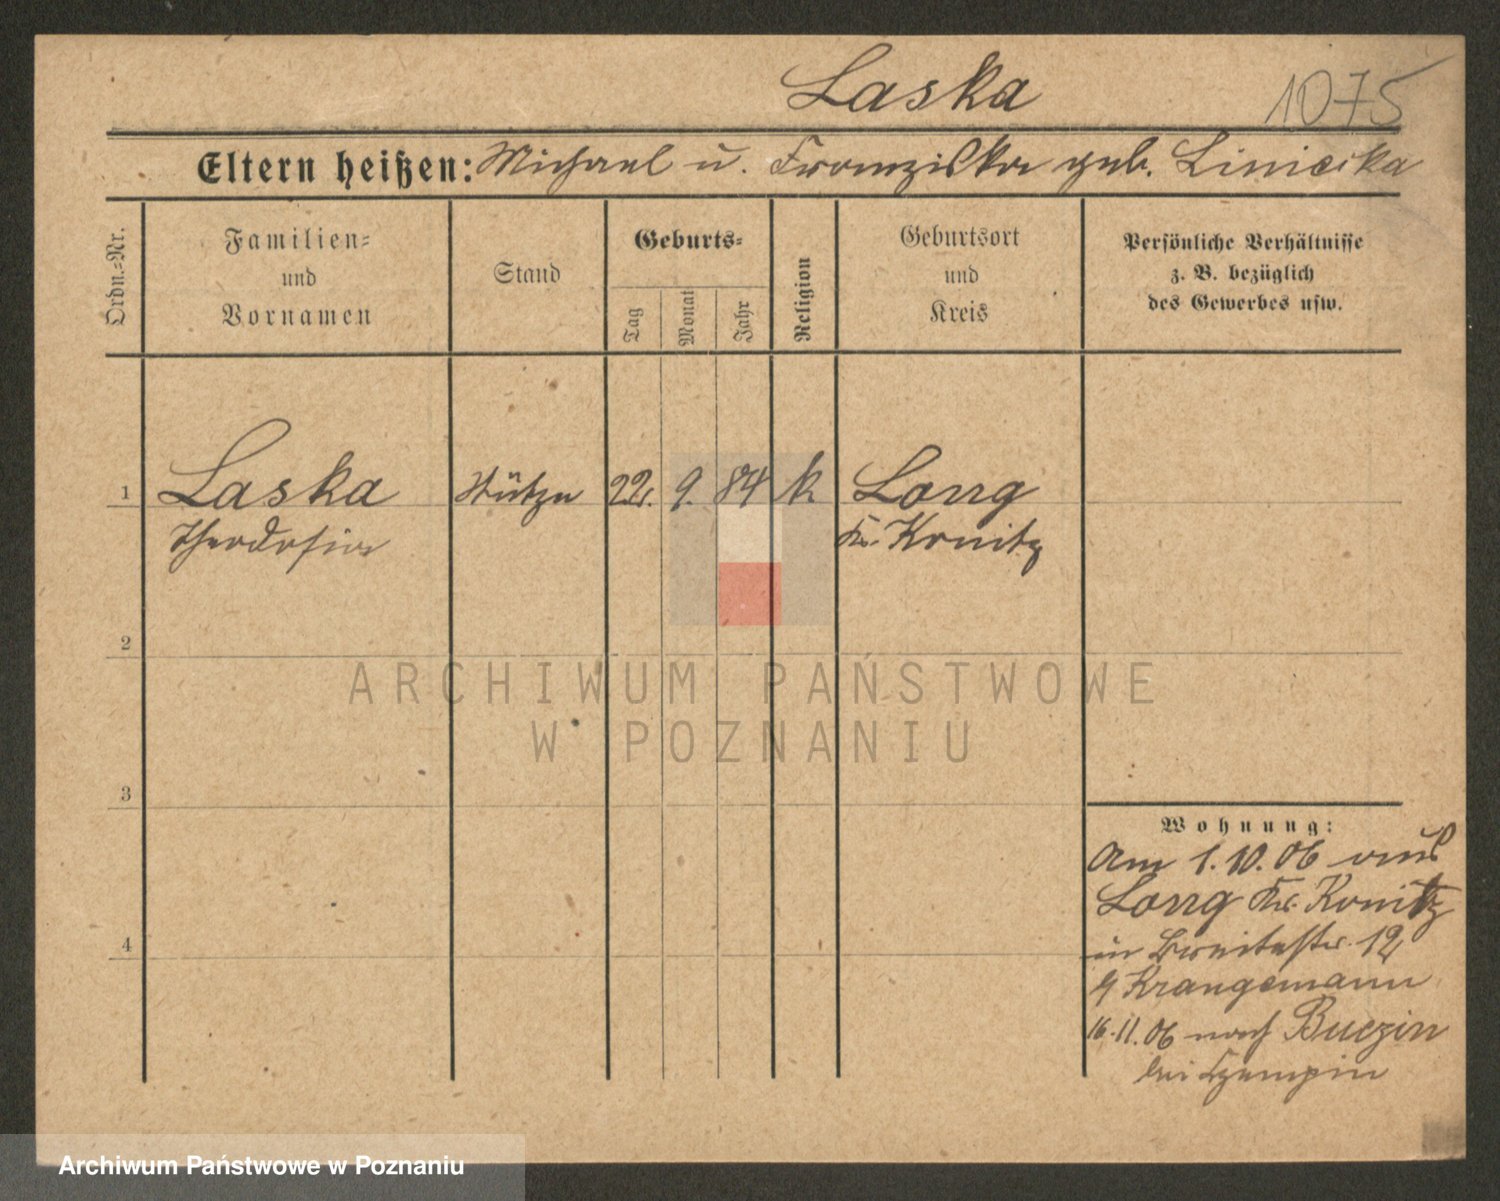 Laska
1075
Eltern heißen: Michael u. Franziska geb. Linicska
Ordn.-Nr.
Familien-
und
Vornamen
Stand
Geburts-
Tag
Monat
Jahr
Religion
Geburtsort
und
Kreis
Persönliche Verhältnisse
z. B. bezüglich
des Gewerbes usw.
1 Laska Stütze 22. 9. 84 k Long
Theodosia Kr. Konitz
2
3
4
Wohnung:
Am 1.10.06 aus
Long Kr. Konitz
in Breitestr. 12
Krangemann
16.11.06 nach Buczin
bei Czempin
ARCHIWUM PAŃSTWOWE
W POZNANIU
Archiwum Państwowe w Poznaniu